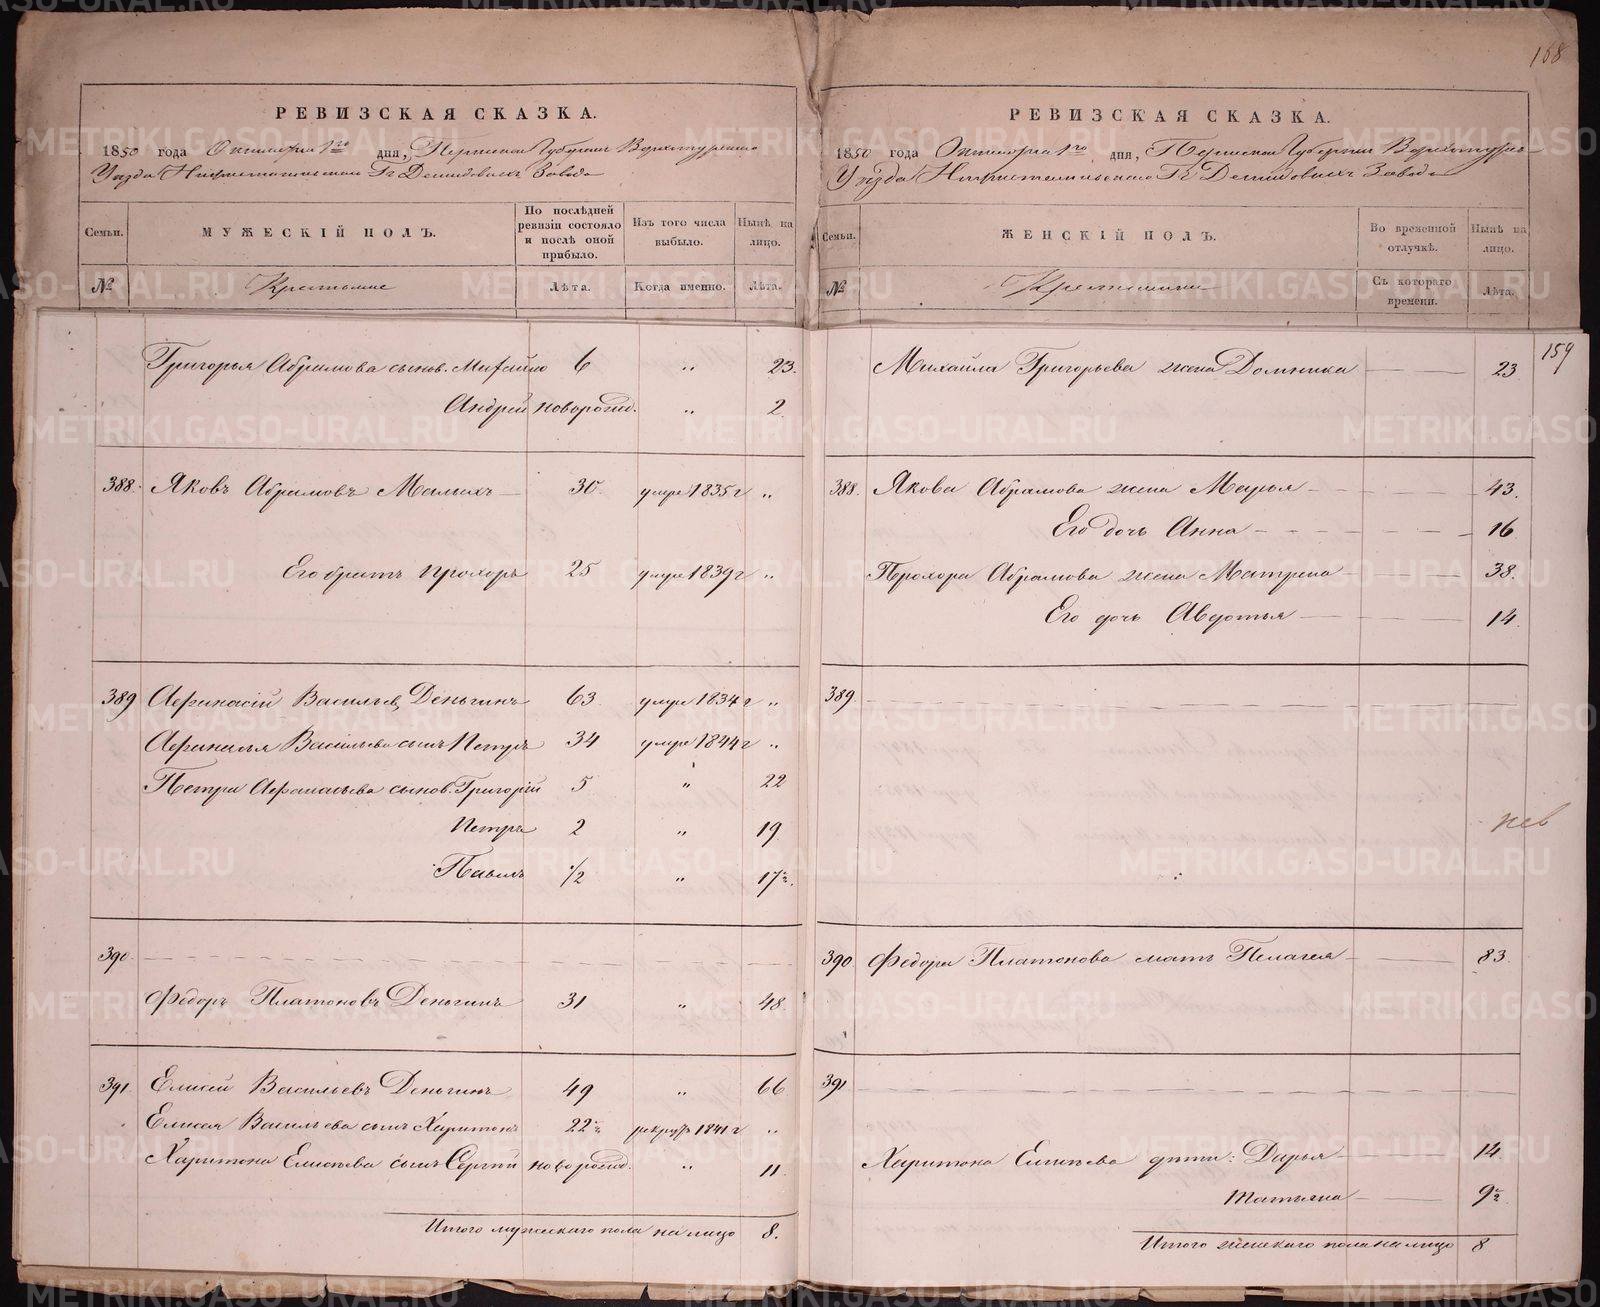 158
РЕВИЗСКАЯ СКАЗКА.
1850 года Октября 1го дня, Пермской Губернии Верхотурскаго
Уезда Нижнетагильскаго Гг Демидовыхъ Завода
Семьи.
МУЖЕСКІЙ ПОЛЪ.
По послѣдней ревизіи состояло и послѣ оной прибыло.
Изъ того числа выбыло.
Нынѣ на лицо.
№
Крестьяне
Лѣта.
Когда именно.
Лѣта.
Григорья Абрамова сынов. Михайло 6 " 23.
Андрей новорожд. " 2
388. Яковъ Абрамовъ Малыхъ 30 умре 1835 г "
Его братъ Прохоръ 25 умре 1839 г "
389 Афанасій Васильев Деньгинъ 63 умре 1834 г "
Афанасья Васильева сынъ Петръ 34 умре 1844 г "
Петра Афанасьева сынов. Григорій 5 " 22
Петръ 2 " 19
Павелъ 1/2 " 17½.
390
Федоръ Платоновъ Деньгинъ 31 " 48
391 Елисей Васильевъ Деньгинъ 49 " 66
Елисея Васильева сынъ Харитонъ 22½ рекрут 1841 г "
Харитона Елисеева сынъ Сергий новорожд. " 11
Итого мужескаго пола на лицо 8.
РЕВИЗСКАЯ СКАЗКА.
1850 года Октября 1го дня, Пермской Губернии Верхотурск
Уезда Нижнетагильскаго Гг Демидовыхъ Завода
Семьи.
ЖЕНСКІЙ ПОЛЪ.
Во временной отлучкѣ.
Нынѣ на лицо.
№
Крестьянки
Съ котораго времени.
Лѣта.
159
Михайла Григорьева жена Домника 23
388. Якова Абрамова жена Марья 43.
Его дочь Анна 16
Прохора Абрамова жена Матрена 38.
Его дочь Авдотья 14.
389.
нев
390 Федора Платонова мать Пелагея 83
391
Харитона Елисеева дети: Дарья 14
Татьяна 9½
Итого женскаго пола на лицо 8
METRIKI.GASO-URAL.RU